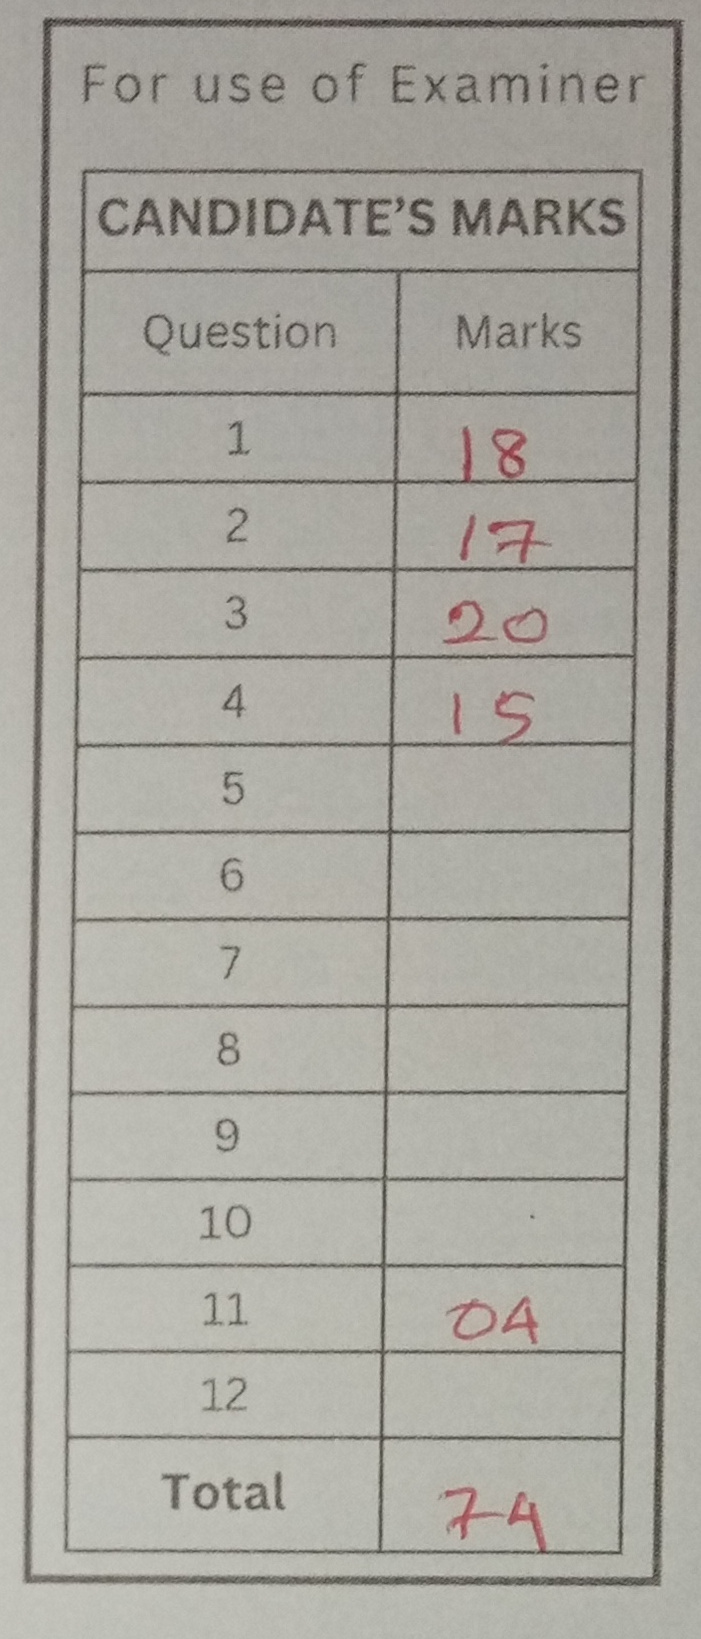 For use of Examiner
CANDIDATE'S MARKS
Question Marks
1 18
2 17
3 20
4 15
5
6
7
8
9
10
11 04
12
Total 74